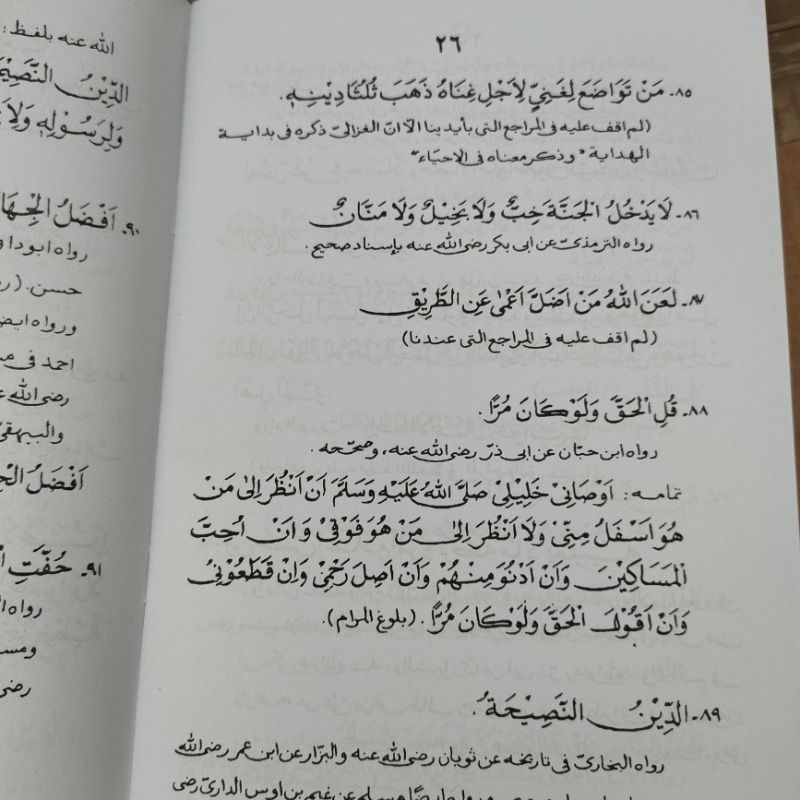 ٢٦
٨٥- مَنْ تَوَاضَعَ لِغَنِيٍّ لِاَجْلِ غِنَاهُ ذَهَبَ ثُلُثَا دِيْنِهِ.
(لم اقف عليه فى المراجع التى بأيدينا الاّ انّ الغزالىّ ذكره فى بداية
الهداية "وذكر معناه فى الاحياء"
٨٦- لَا يَدْخُلُ الْجَنَّةَ خِبٌّ وَلَا بَخِيْلٌ وَلَا مَنَّانٌ
رواه الترمذىّ عن ابى بكر رضى الله عنه بإسناد صحيح.
٨٧- لَعَنَ اللهُ مَنْ اَضَلَّ اَعْمٰى عَنِ الطَّرِيْقِ
(لم اقف عليه فى المراجع التى عندنا)
٨٨- قُلِ الْحَقَّ وَلَوْ كَانَ مُرًّا.
رواه ابن حبّان عن ابى ذرّ رضى الله عنه، وصحّحه.
تمامه: اَوْصَانِيْ خَلِيْلِيْ صَلَّى اللهُ عَلَيْهِ وَسَلَّمَ اَنْ اَنْظُرَ اِلٰى مَنْ
هُوَ اَسْفَلُ مِنِّيْ وَلَا اَنْظُرَ اِلٰى مَنْ هُوَ فَوْقِيْ وَاَنْ اُحِبَّ
الْمَسَاكِيْنَ وَاَنْ اَدْنُوَ مِنْهُمْ وَاَنْ اَصِلَ رَحْمِيْ وَاِنْ قَطَعُوْنِيْ
وَاَنْ اَقُوْلَ الْحَقَّ وَلَوْ كَانَ مُرًّا. (بلوغ المرام).
٨٩- الدِّيْنُ النَّصِيْحَةُ.
رواه البخارىّ فى تاريخه عن ثوبان رضى الله عنه والبزّار عن ابن عمر رضى الله
مسلم عن تميم بن اوس الدارىّ رضى
الله عنه بلفظ:
الدِّيْنُ
وَلِرَسُوْلِهِ
٩٠- اَفْضَلُ
رواه ابوداو
حسن.
ورواه ايض
احمد فى
رضى الله
والبيهقىّ
اَفْضَلُ
٩١- حُفَّتِ
رواه
ومس
رضى